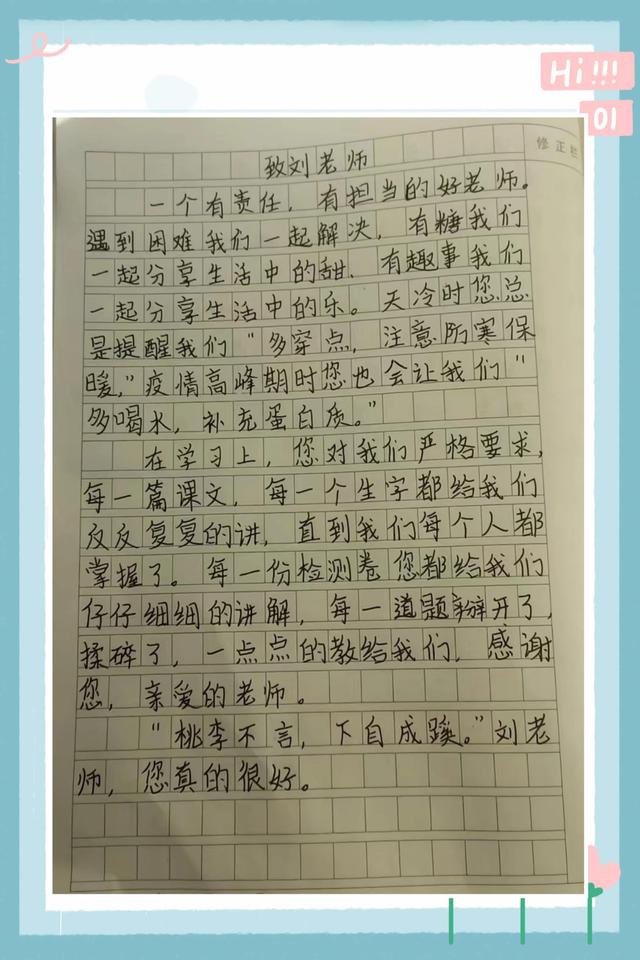 Hi!!!
01
修正栏
致刘老师
一个有责任，有担当的好老师。
遇到困难我们一起解决，有糖我们
一起分享生活中的甜，有趣事我们
一起分享生活中的乐。天冷时您总
是提醒我们“多穿点，注意防寒保
暖，”疫情高峰期时您也会让我们“
多喝水，补充蛋白质。”
在学习上，您对我们严格要求，
每一篇课文，每一个生字都给我们
反反复复的讲，直到我们每个人都
掌握了。每一份检测卷您都给我们
仔仔细细的讲解，每一道题掰开了，
揉碎了，一点点的教给我们，感谢
您，亲爱的老师。
“桃李不言，下自成蹊。”刘老
师，您真的很好。